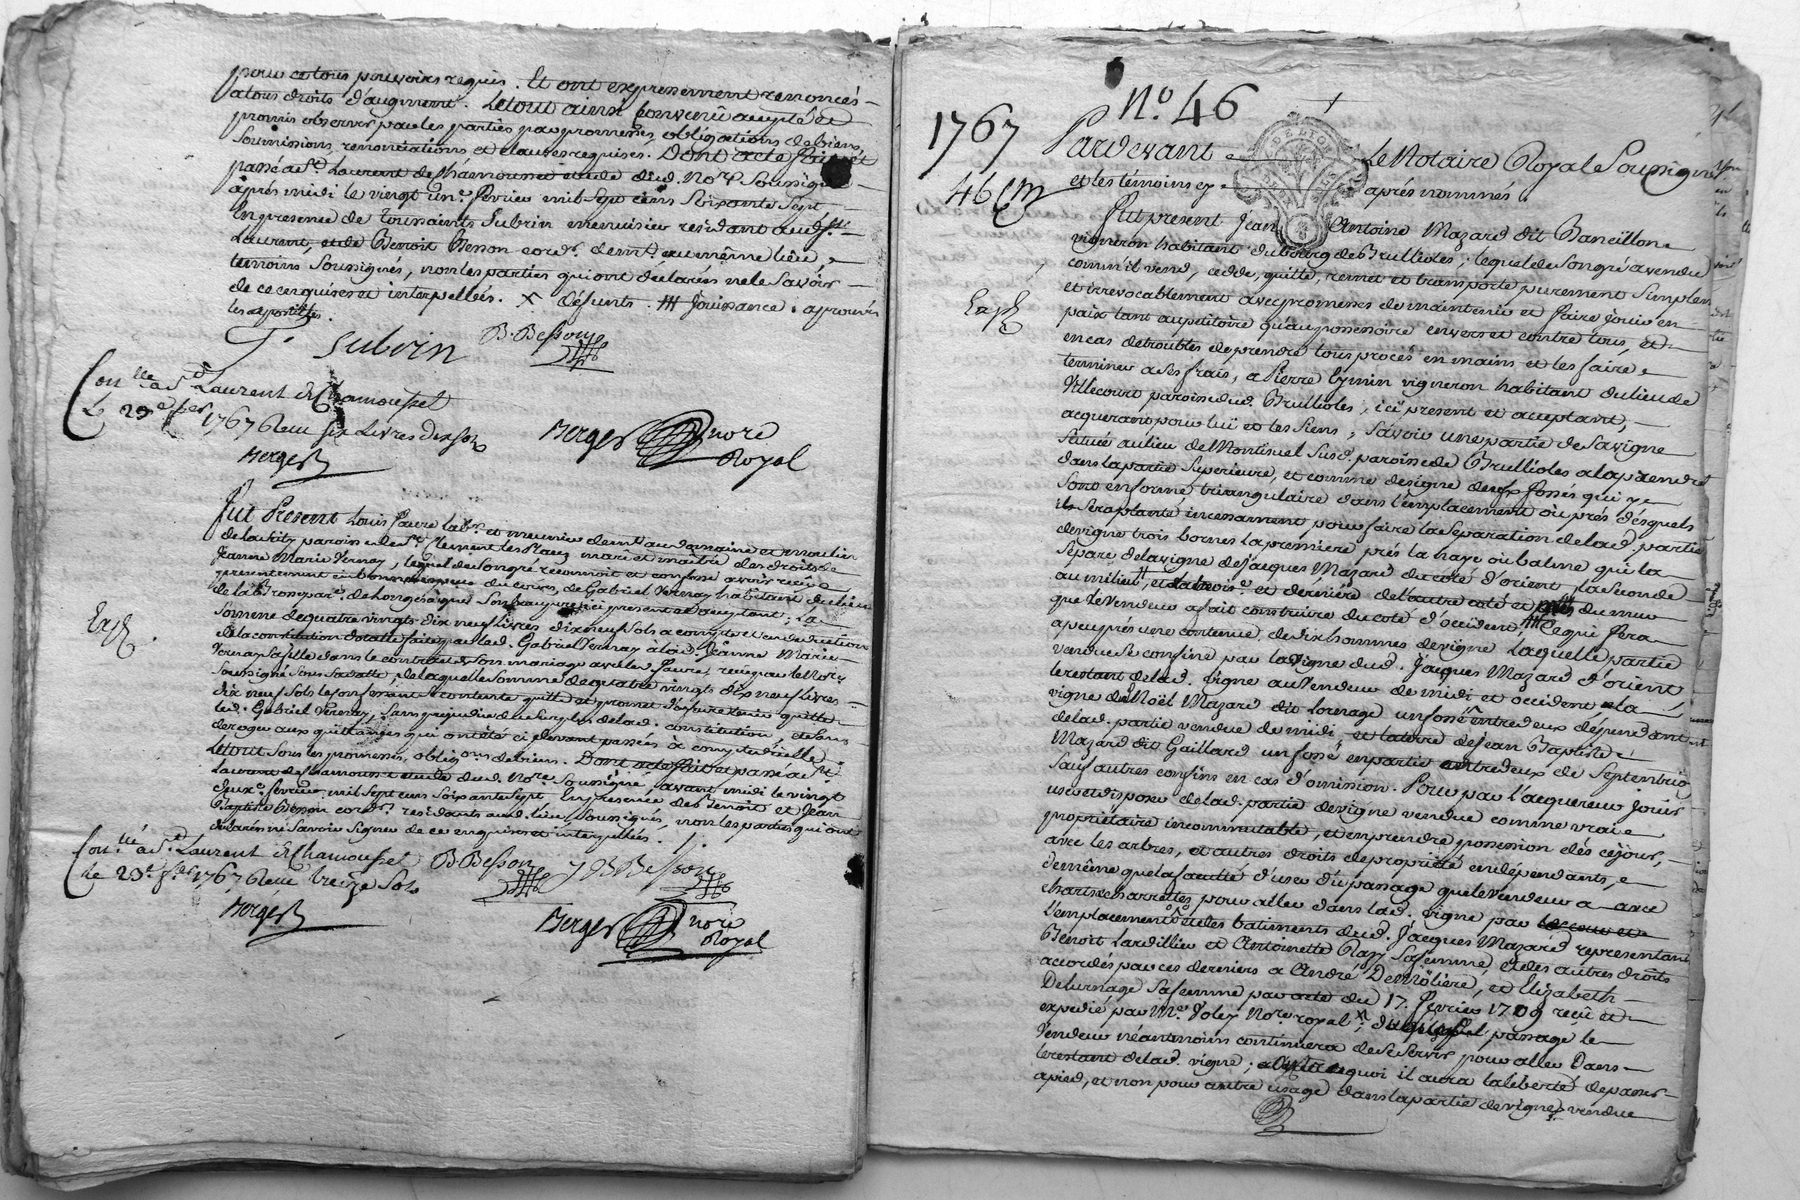 pour ce tous pouvoirs requis. Et ont expressement renoncés
a tous droits d'augment. Le tout ainsi convenû accepté et
promis observer par les parties par promesses, obligations de biens,
soumissions, renonciations et clauses requises. Dont acte fait et
passé a St. Laurent de Chamousset etude dud. Nore. soussigné
après midi le vingt un e fevrier mil sept cens soixante sept
En presence de Toussaints Subrin menuisier residant aud. St.
Laurent, et de Benoit Besson cordr. demt. au même lieu,
temoins soussignés, non les parties qui ont declarés ne le savoir
de ce enquises et interpellées. X défunts. ### jouissance. approuvés
les apostilles.
T. Subrin B. Besson
Con.llé a St. Laurent de Chamousset
le 23e fber 1767 Recu six Livres dix sols
Berger
Berger nore
Royal
Fut Present Louis Favre labr. et meunier demt. au domaine et moulin
de la paroisse de St. Clement les Places mari et maitre des droits de
Jeanne Marie Vernay, lequel de son gré reconnoit et confesse avoir reçû
presentement en bonnes especes du cours, de Gabriel Vernay habitant du lieu
de la parse. de Longesaigne son beaupere ici present et acceptant, la
somme de quatre vingts dix neuf livres dix neuf sols a compte et en deduction
de la constitution dotale faite par led. Gabriel Vernay a lad. Jeanne Marie
Vernay sa fille dans le contrat de son mariage avec led. Favre, reçu par le Nore.
soussigné sous sa datte, de laquelle somme de quatre vingts dix neuf livres
dix neuf sols le confessant content quitte et promet faire tenir quitte
led. Gabriel Vernay, sans prejudice du surplus de lad. constitution, et sans
deroger aux quittances qui ont été ci devant passées a compte d'icelle.
Le tout sous les promesses, obligons. de biens. Dont acte fait et passé a St.
Laurent de Chamousset etude dud. Nore. soussigné, avant midi le vingt
deux e fevrier mil sept cens soixante sept. En presence de Benoit et Jean
Baptiste Besson cordrs. residants aud. lieu soussignés, non les parties qui ont
declarés ne savoir signer de ce enquises et interpellées.
Con.llé a St. Laurent de Chamousset B. Besson J B Besson
le 23e fber 1767 Recu treize sols
Berger
Berger nore
Royal
No. 46
1767
Pardevant Le Notaire Royal Soussigné
et les témoins cy après nommés
46
Fut present Jean Antoine Mazard dit Bancillon
vigneron habitant du bourg de Brullioles; lequel de son gré a vendu
comm'il vend, cedde, quitte, remet et transporte purement simplem
et irrevocablement avec promesses de maintenir et faire jouir en
paix tant au petitoire qu'au possessoire envers et contre tous, et
en cas de troubles de prendre tous procés en mains et les faire
terminer a ses frais, a Pierre Eymin vigneron habitant du lieu de
Villecourt paroisse dud. Brullioles, ici present et acceptant,
acquerant pour lui et les siens; sâvoir une partie de sa vigne
située au lieu de Montisuel susd. paroisse de Brullioles a la prendre
dans la partie superieure, et comme designe deux fossés qui y
sont en forme triangulaire dans l'emplacement ou près désquels
il sera planté incessament pour faire la separation de lad. partie
de vigne trois bornes la premiere près la haye ou balme qui la
separe de la vigne de Jacques Mazard du coté d'orient la seconde
au milieu, et la trois e. et dérniére de l'autre coté et du mur
que le vendeur a fait construire du coté d'occident, ### ce qui fera
apeuprés une contenue de dix hommes de vigne. Laquelle partie
vendue se confine par la vigne dud. Jacques Mazard d'orient
le restant de lad. vigne au vendeur de midi et occident, la
vigne de Noël Mazard dit Lorenage un fossé entredeux dépendant
de lad. partie vendue de midi, et la terre de Jean Baptiste
Mazard dit Gaillard un fossé en partie entredeux de septentrion
sauf autres confins en cas d'omission. Pour par l'acquereur jouir
user et disposer de lad. partie de vigne vendue comme vraie
propriétaire incommutable, et en prendre possession dès cejour,
avec les arbres, et autres droits de proprieté en dépendants,
de même que la faculté d'user du passage que le vendeur a avec
chars et charrettes pour aller dans lad. vigne par
l'emplacement et les batiments dud. Jacques Mazard representant
Benoit Lardillier et Antoinette Rasy sa femme, et des autres droits
accordés par ces derniers a André De Moliere, et Elizabeth
Delurnage sa femme par acte du 17. Fevrier 1709 reçû et
expedié par Me. Voley Nore. royal X, passage le
Vendeur néantmoins continuera de se servir pour aller dans
le restant de lad. vigne; quoi il aura la liberté de passer
apied, et non pour autre usage dans la partie de vigne vendue